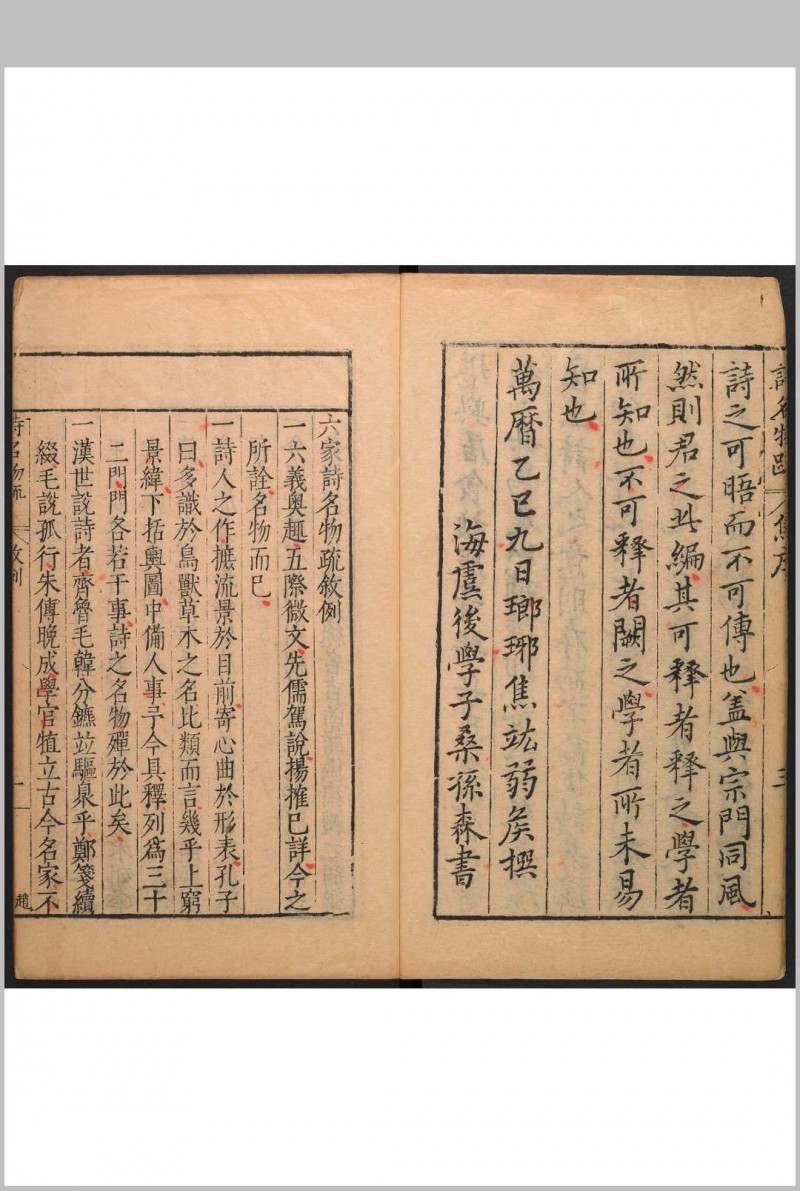 詩名物疏 焦序 三
詩之可晤而不可傳也盖與宗門同風
然則君之此編其可釋者釋之學者
所知也不可釋者闕之學者所未易
知也
萬曆乙巳九日瑯琊焦竑弱矦撰
海虞後學子桑孫森書
六家詩名物疏敘例
一六義奥趣五際微文先儒駕說揚搉已詳今之
所詮名物而已
一詩人之作摭流景於目前寄心曲於形表孔子
曰多識於鳥獸草木之名比類而言幾乎上窮
景緯下括輿圖中備人事亍今具釋列爲三十
二門門各若干事詩之名物殫於此矣
一漢世說詩者齊魯毛韓分鑣竝驅泉乎鄭箋續
綴毛說孤行朱傳晚成學官犆立古今名家不
詩名物疏 敘例 一 趙